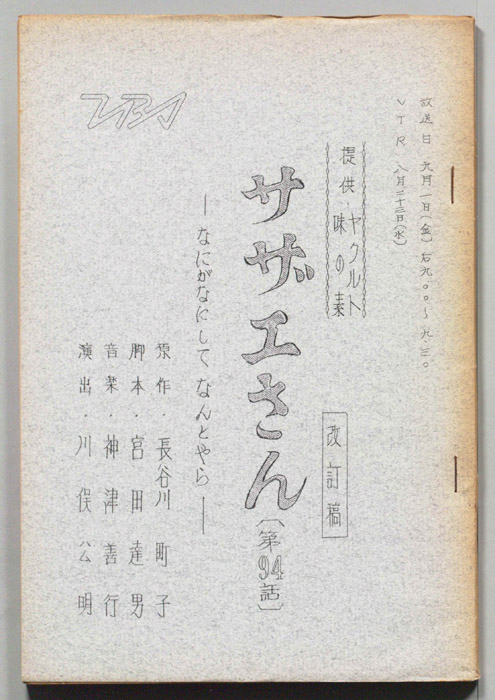 放送日 九月一日(金)右九〇〇~九三〇
VTR 八月二十三日(水)
提供・ヤクルト
味の素
改訂稿
サザエさん(第94話)
―なにがなにして なんとやら―
原作・長谷川町子
脚本・宮田達男
音楽・神津善行
演出・川俣公明
TBS